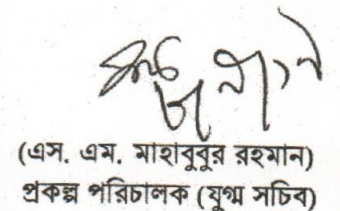 (এস. এম. মাহাবুবুর রহমান)
প্রকল্প পরিচালক (যুগ্ম সচিব)